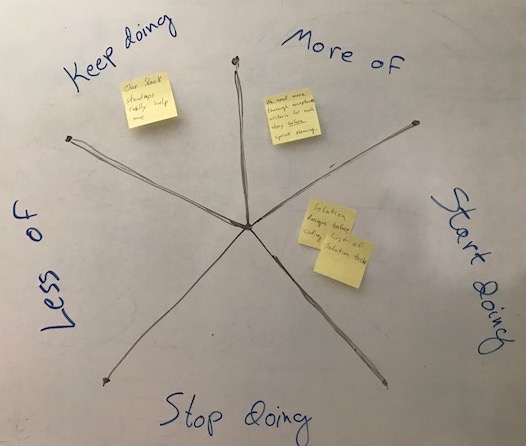 Keep doing
More of
Our Slack
standups
really help
me
We need more
through acceptance
criteria for each
story before
sprint planning.
Solution
design before
coding
List of
Solution tasks
Start Doing
Less of
Stop Doing